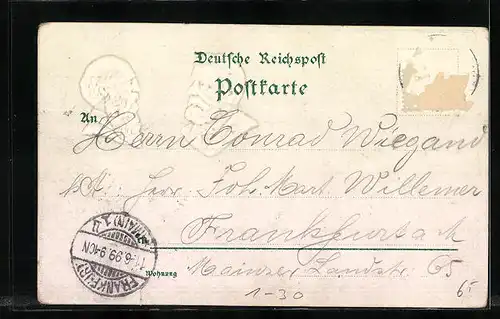 Deutsche Reichspost
Postkarte
An
Herrn Conrad Wiegand
Joh. Mart. Willemer
Frankfurt a M
Wohnung
Mainzer Landstr. 65
FRANKFURT
(MAIN) 1
11.6.99. 9-10N
1-30
6.-